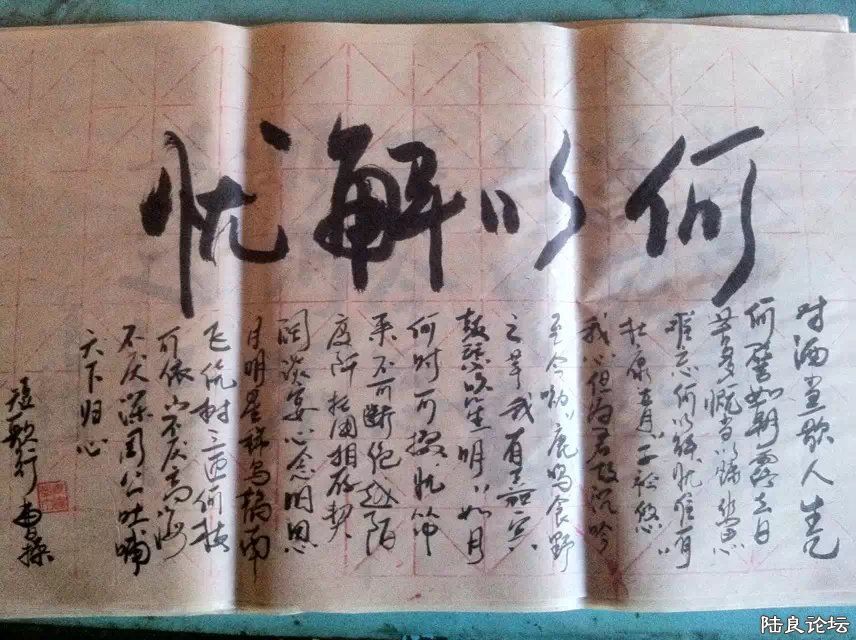 何以解忧
对酒当歌人生几
何譬如朝露去日
苦多慨当以慷幽思
难忘何以解忧唯有
杜康青〃子衿悠〃
我心但为君故沉吟
至今呦〃鹿鸣食野
之苹我有嘉宾
鼓瑟吹笙明〃如月
何时可掇忧从中
来不可断绝越陌
度阡枉用相存契
阔谈宴心念旧恩
月明星稀乌鹊南
飞绕树三匝何枝
可依山不厌高海
不厌深周公吐哺
天下归心
短歌行 曹操
陆良论坛